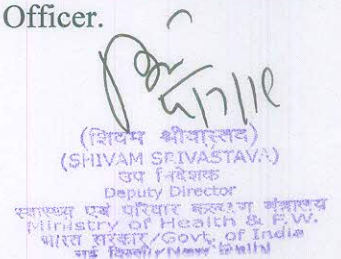 Officer.
(शिवम श्रीवास्तव)
(SHIVAM SRIVASTAVA)
उप निदेशक
Deputy Director
स्वास्थ्य एवं परिवार कल्याण मंत्रालय
Ministry of Health & F.W.
भारत सरकार/Govt. of India
नई दिल्ली/New Delhi